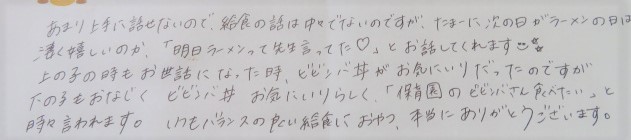 あまり上手に話せないので、給食の話は中々でないのですが、たまーに次の日がラーメンの日は
凄く嬉しいのか、「明日ラーメンって先生言ってた♡」とお話してくれます
上の子の時もお世話になった時、ビビンバ丼がお気にいりだったのですが
下の子もおなじく ビビンバ丼 お気にいりらしく、「保育園のビビンバさん食べたい」と
時々言われます。 いつもバランスの良い給食におやつ、本当にありがとうございます。